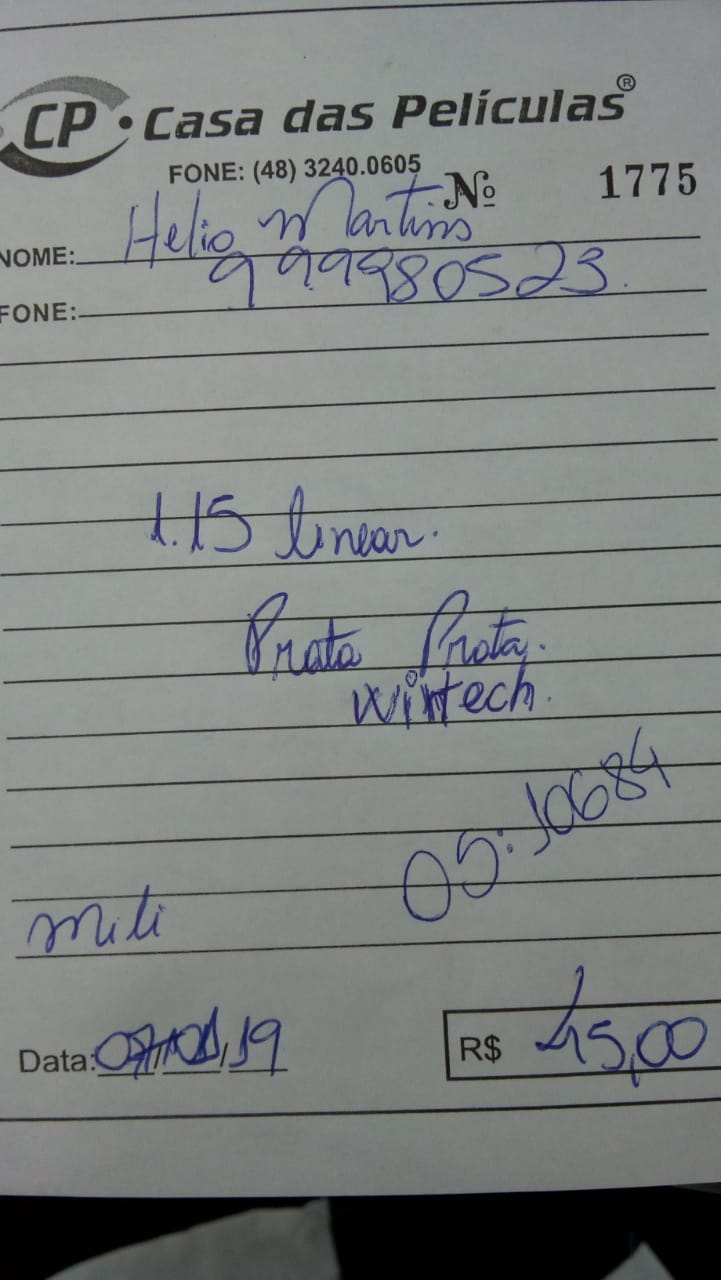 CP · Casa das Películas®
FONE: (48) 3240.0605
Nº 1775
NOME: Helio Martins
999980523.
FONE:
1.15 linear.
Prata Prata.
wintech.
OS: 10684
mili
Data: 07/01/19
R$ 45,00